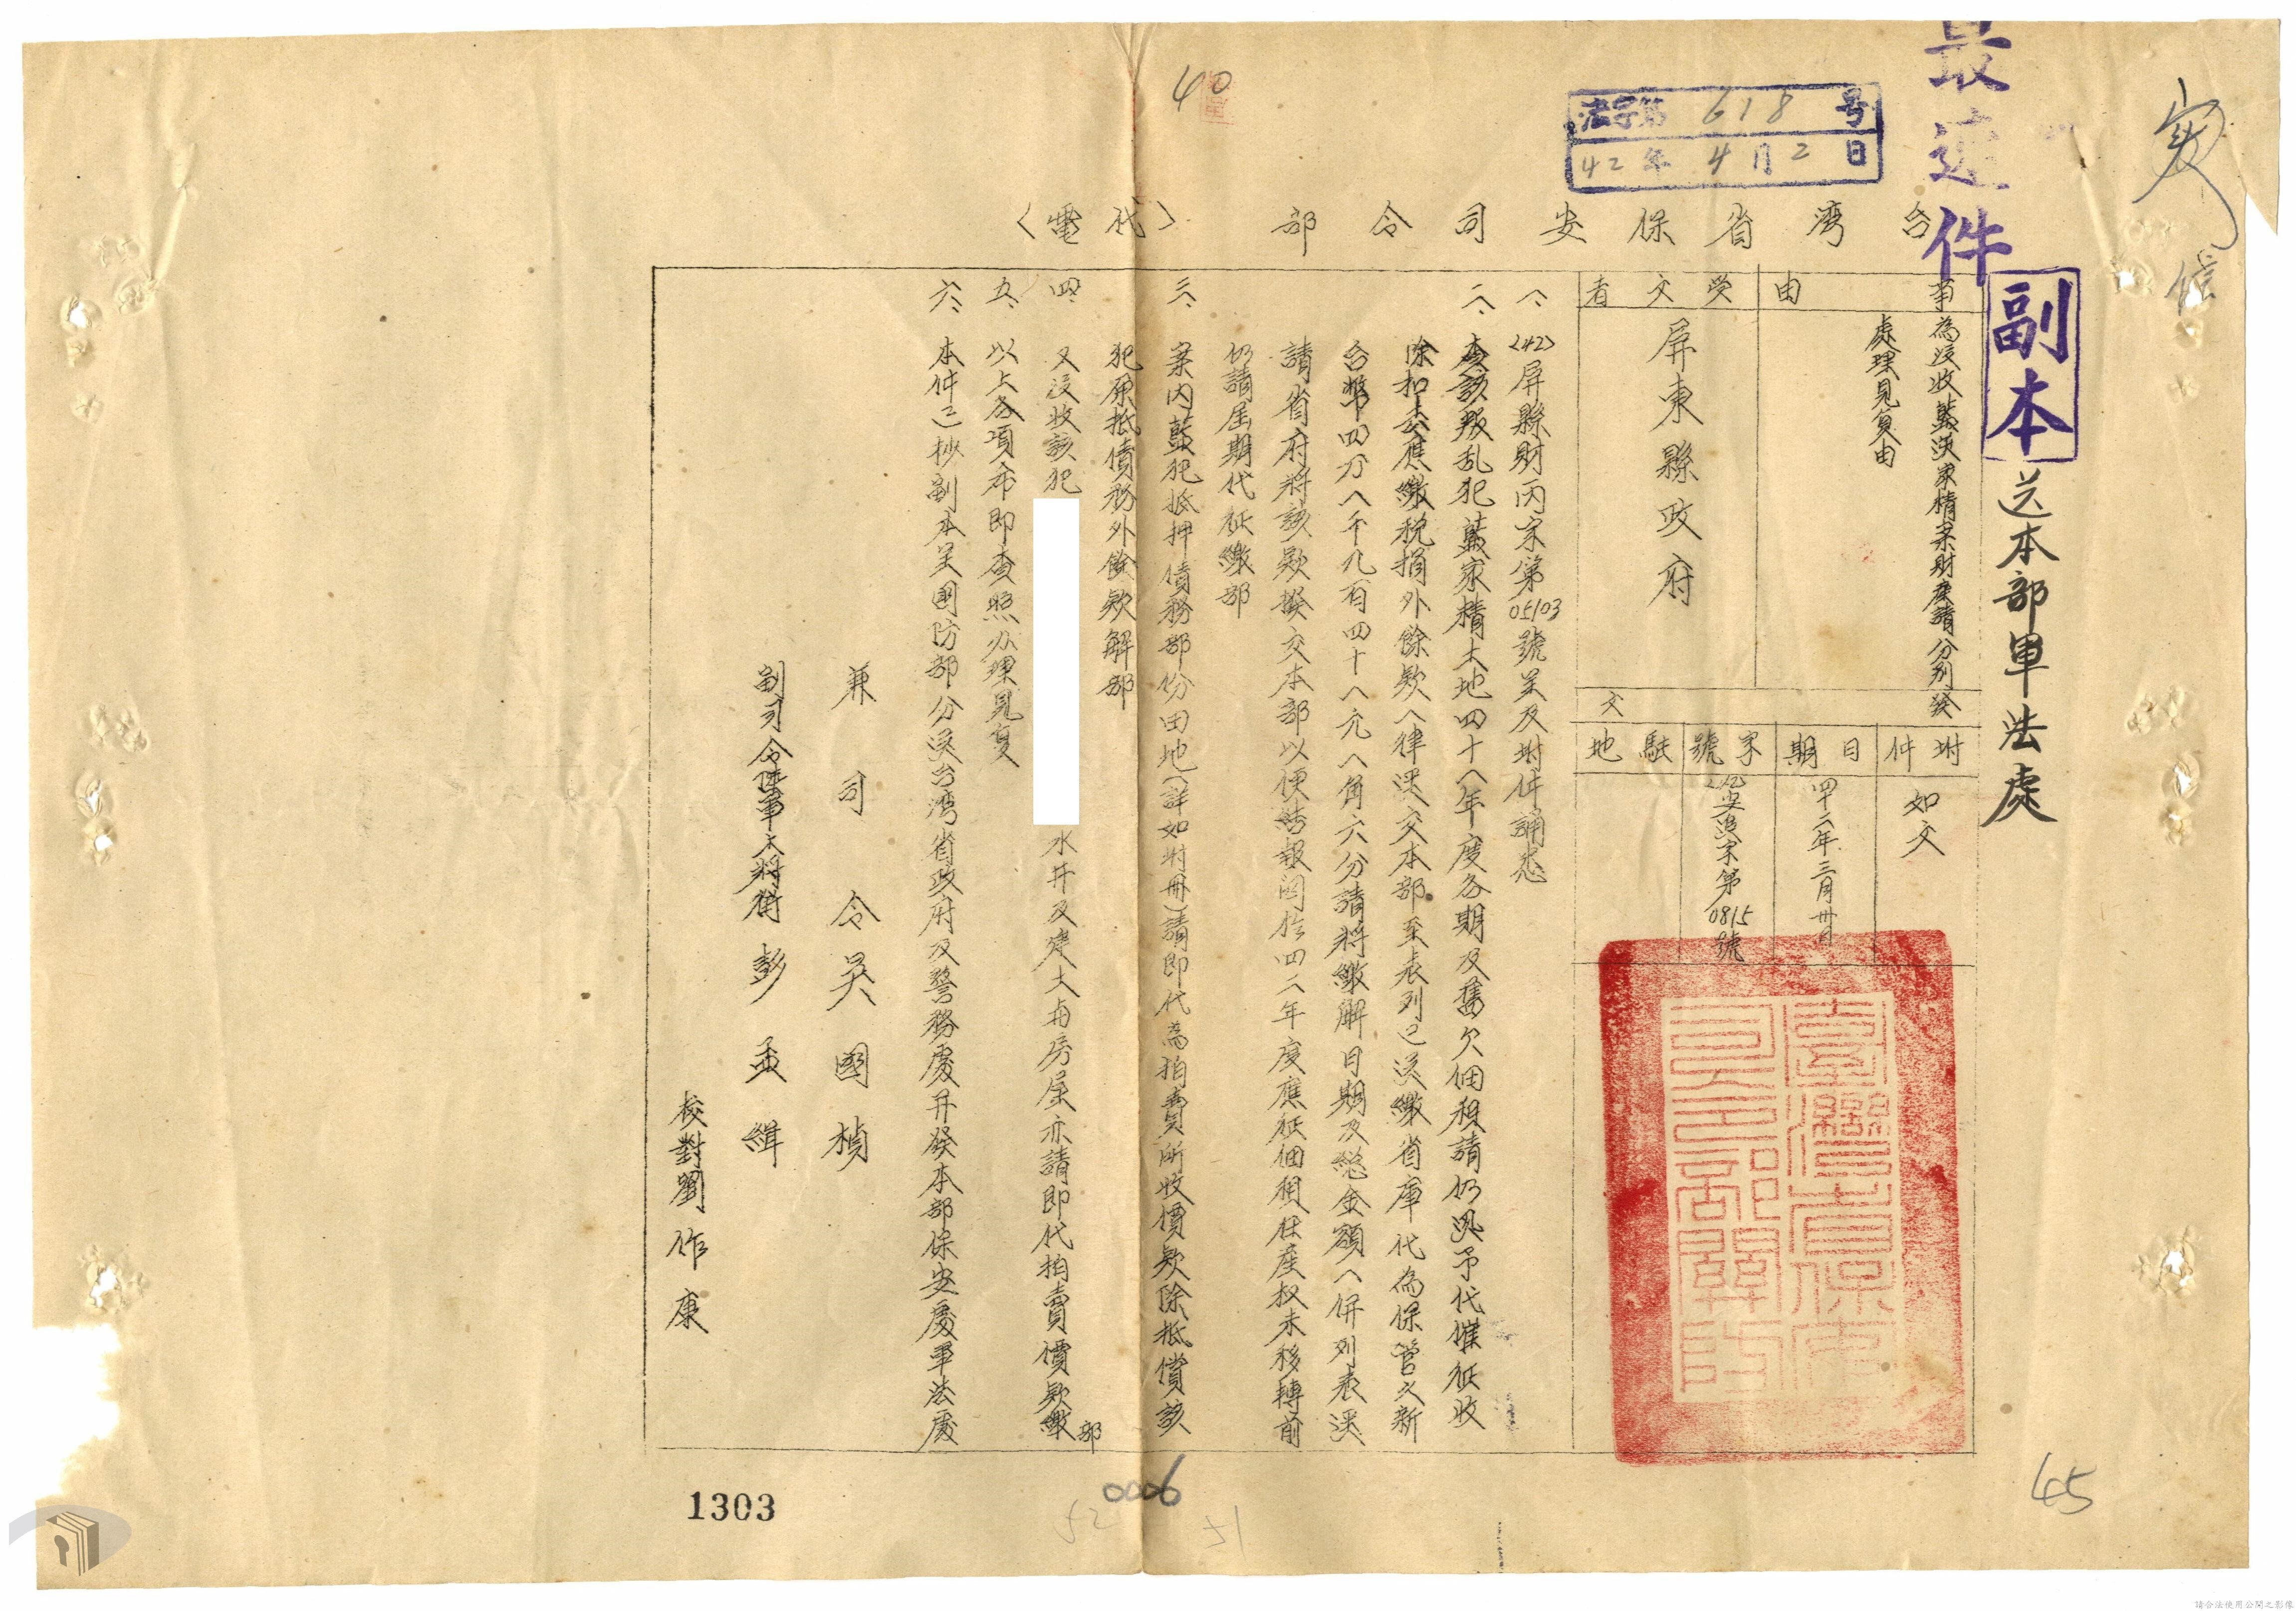 最速件
副本 送本部軍法處
法字第 618 号
42年 4月 2日
40
台湾省保安司令部 〈代電〉
事由
為沒收藍漢家精案財產請分別
處理見復由
受文者
屏東縣政府
發文
附件
如文
日期
四十二年三月卅日
字號
字第0815號
駐地
一、〈42〉屏縣財丙字第05103號呈及附件誦悉
二、查該叛乱犯藍家精土地四十一年度各期及舊欠佃租請仍迅予代催征收
除扣去應繳稅捐外餘欵一律送交本部至表列已送繳省庫代為保管之新
台幣四万八千九百四十八元八角六分請將繳解日期及總金額一併列表送
請省府將該欵撥交本部以便結報関於四二年度應征佃租在產权未移轉前
仍請屆期代征繳部
三、案內藍犯抵押債務部份田地(詳如附冊)請即代為拍賣所收價欵除抵償該
犯原抵債務外餘欵解部
四、又沒收該犯
水井及建大毋房屋亦請即代拍賣價欵繳部
五、以上各項希即查照办理見复
六、本件已抄副本呈國防部分送台湾省政府及警務處并發本部保安處軍法處
兼司令吳國楨
副司令陸軍大將銜 彭孟緝
校對劉作康
臺灣省保安司令部關防
1303
0006
52
51
45
請合法使用公開之影像